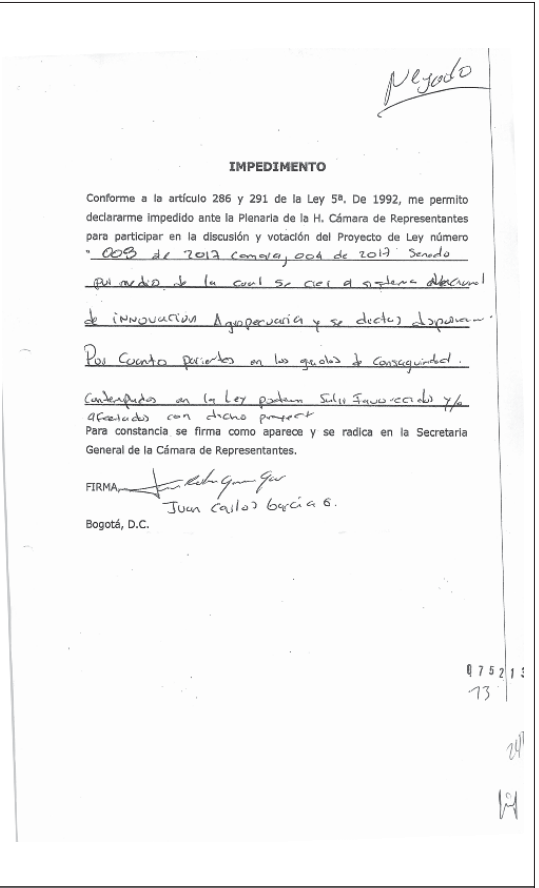 Negado
IMPEDIMENTO
Conforme a la artículo 286 y 291 de la Ley 5ª. De 1992, me permito
declararme impedido ante la Plenaria de la H. Cámara de Representantes
para participar en la discusión y votación del Proyecto de Ley número
009 de 2017 Camara, 004 de 2017 Senado
por medio de la cual se crea el sistema Nacional
de innovacion Agropecuaria y se dictas
Por Cuanto parientes en los grados de Consaguinidad.
Contemplados en la Ley podrian Salir Favorecidos y/o
afectados con dicho proyect
Para constancia se firma como aparece y se radica en la Secretaria
General de la Cámara de Representantes.
FIRMA
Juan Carlos Garcia G.
Bogotá, D.C.
07521
13